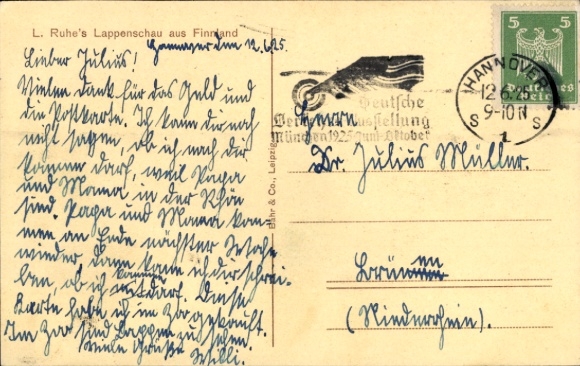 L. Ruhe's Lappenschau aus Finnland
Hannover den 12.6.25.
Lieber Julius!
Vielen Dank für das Geld und
die Postkarte. Ich kann dir noch
nicht sagen, ob ich nach dir
kommen darf, weil Papa
und Mama in der Rhön
sind. Papa und Mama kom-
men an Ende nächster Woche
wieder, dann kann ich dir schrei-
ben, ob ich kommen darf. Diese
Karte habe ich im Zoo gekauft.
Im Zoo sind Lappen zu sehen.
Viele Grüße Willi.
Bähr & Co., Leipzig
Deutsche
Verkehrsausstellung
München 1925 Juni-Oktober
HANNOVER
12.6.25
9-10 N
S S
1
5 5
Deutsches
Reich
Herrn
Dr. Julius Müller.
Brünen
(Niederrhein).